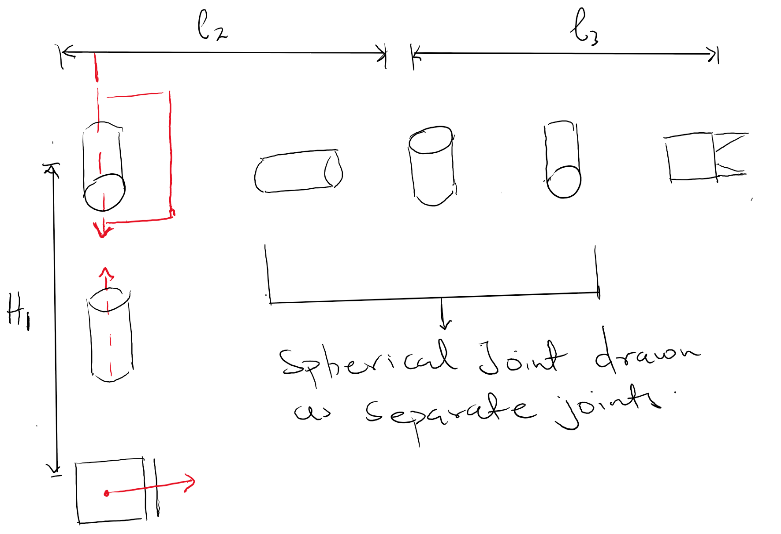 l2
l3
H1
Spherical Joint drawn
as separate joints.